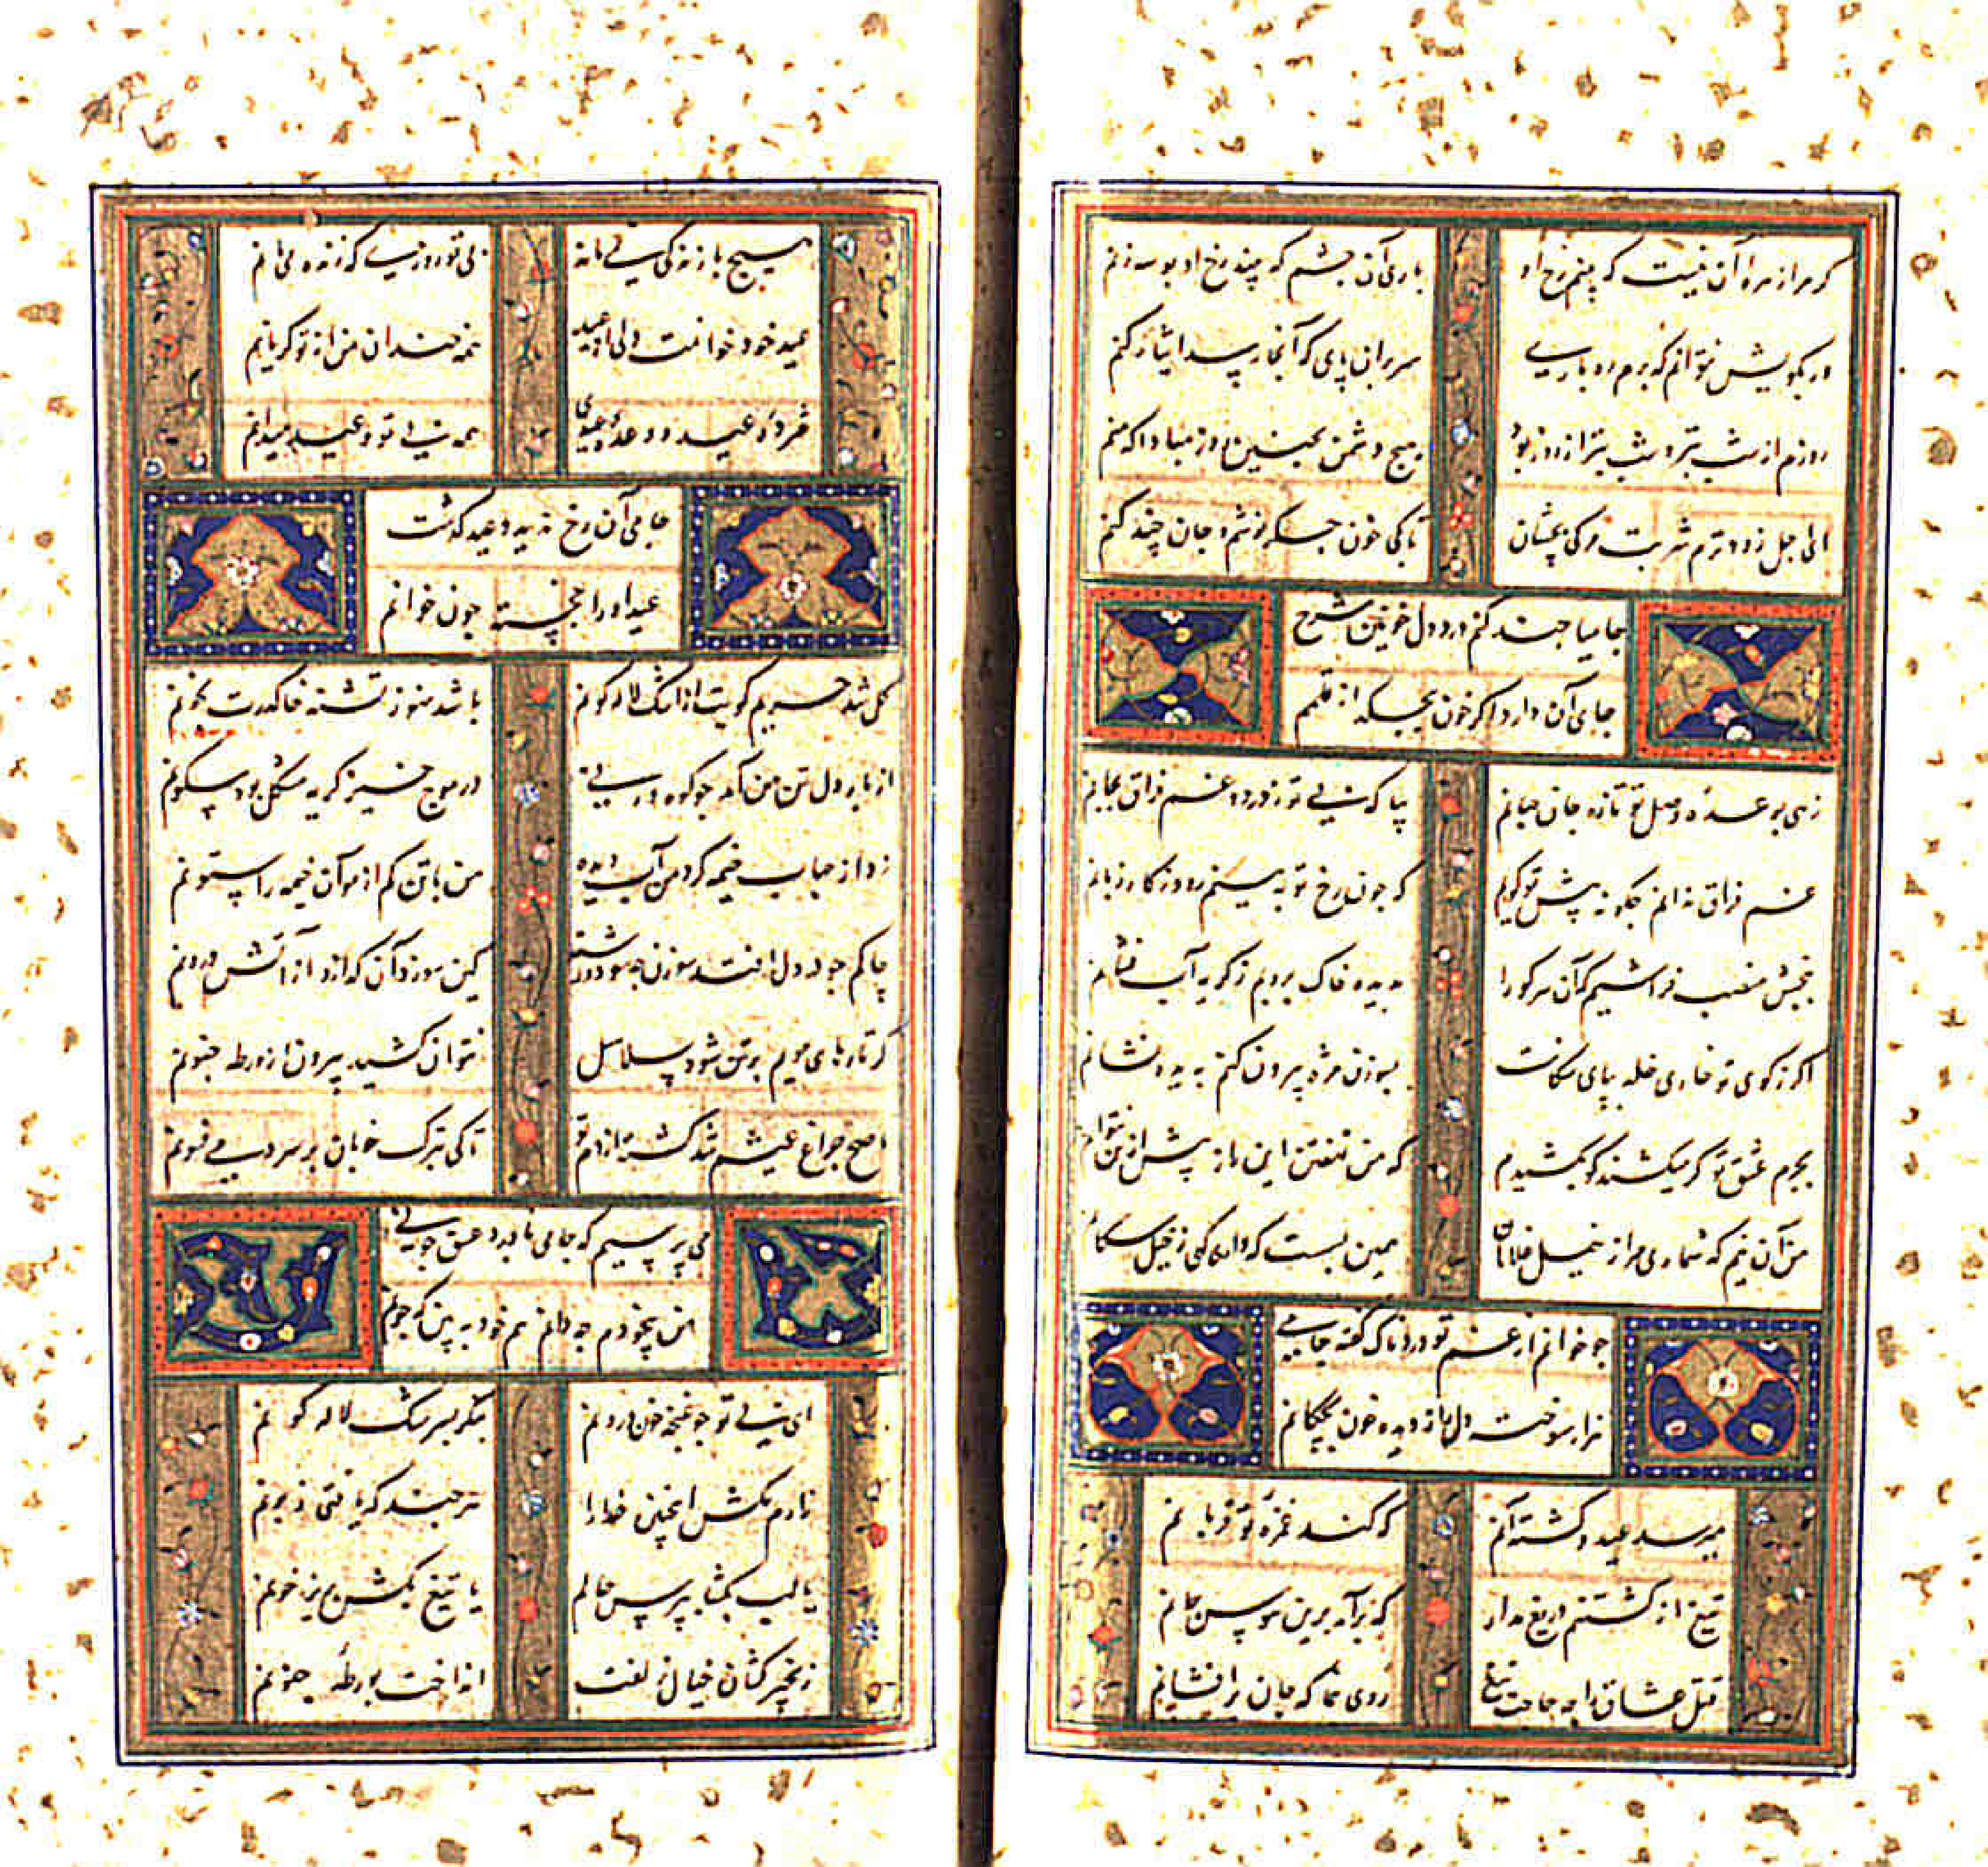 گر مرا زهره آن نیست که بینم رخ او
باری آن چشم که بیند رخ او بوسه زنم
ور بکویش نتوانم که برم ره باری
سر بر آن پای که آنجا رسد ایثار کنم
روزم از شب بتر و شب بتر از روز بود
هیچ دشمن بچنین روز مبادا که منم
ای اجل زودترم شربت مرگی بچشان
تا کی خون جگر نوشم و جان چند کنم
جامیا چند کنم درد دل خونین شرح
جای آن دارد اگر خون بچکد از قلمم
زهی بوعده وصل تو تازه جان جهانم
بیا که بی تو ز درد و غم فراق بجانم
غم فراق ندانم چگونه پیش تو گویم
که چون رخ تو ببینم رود ز کار زبانم
ببخش منصب فراشیم که آن سر کو را
بدیده خاک بروبم ز گریه آب فشانم
اگر ز کوی تو خاری خلد بپای سگانت
بسوزن مژه بیرون کنم بدیده نشانم
بجرم عشق تو گر میکشند گو بکشیدم
که من نهفتن این راز بیش ازین نتوانم
من آن نیم که شماری مرا ز خیل غلامان
همین بست که دانی گهی ز خیل سگانم
چو خوانم از غم تو دردناک گفته جامی
هزار سوخته دل را ز دیده خون بچکانم
میرسد عید و کشته آنم
که کند غمزه تو قربانم
تیغ از کشتنم دریغ مدار
که برآمد برین هوس جانم
قتل عشاق را چه حاجت تیغ
روی بنما که جان برافشانم
هیچ با زندگی نمی‌ماند
بی تو روزی که زنده می‌مانم
عید خود خوانمت ولی از عید
همه خندان من از تو گریانم
مرده عید و وعده عیدی
همه شب تو و عید میدانم
جامی آن رخ ندید و عید گذشت
عید او را خجسته چون خوانم
گل شد حریم کویت از اشک لاله گونم
باشد هنوز تشنه خاک درت بخونم
از بار دل تن من آمد چو کوه
در موج خیز گریه مشکل بود سکونم
زد از حباب خیمه گرد من آب دیده
من با تن کم از مو آن خیمه را ستونم
چاکم چو در دل افتد سوزن چه سود و رشته
کین سوزد آن گدازد از آتش درونم
گر تارهای مویم بر تن شود سلاسل
نتوان کشید بیرون از ورطه جنونم
ناصح چراغ عیشم شد کشته از دم تو
تا کی بترک خوبان بر سر دمی فسونم
می پرسیم که جامی نابرده عشق چونی
من بیخودم چه دانم هم خود ببین که چونم
ای بی تو چو غنچه خون درونم
بنگر بسرشک لاله گونم
زارم مکش اینچنین خدا را
هر چند که یافتی زبونم
یا لب بگشا بپرس حالم
یا تیغ بکش بریز خونم
زنجیر کشان خیال زلفت
انداخت بورطه جنونم